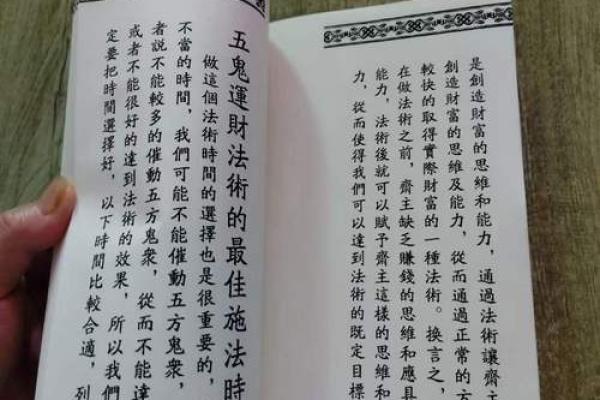 是創造財富的思維和能力，通過法術讓齋主
創造財富的思維及能力，從而通過正常的方
較快的取得實際財富的一種法術。換言之，
在做法術之前，齋主缺乏賺錢的思維和應具
能力，法術後就可以賦予齋主這樣的思維和
力，從而使得我們可以達到法術的既定目標
五鬼運財法術的最佳施法時
做這個法術時間的選擇也是很重要的，
不當的時間，我們可能不能催動五方鬼眾，
者説不能較多的催動五方鬼眾，從而不能達
或者不能很好的達到法術的效果，所以我們
定要把時間選擇好，以下時間比較合適，列